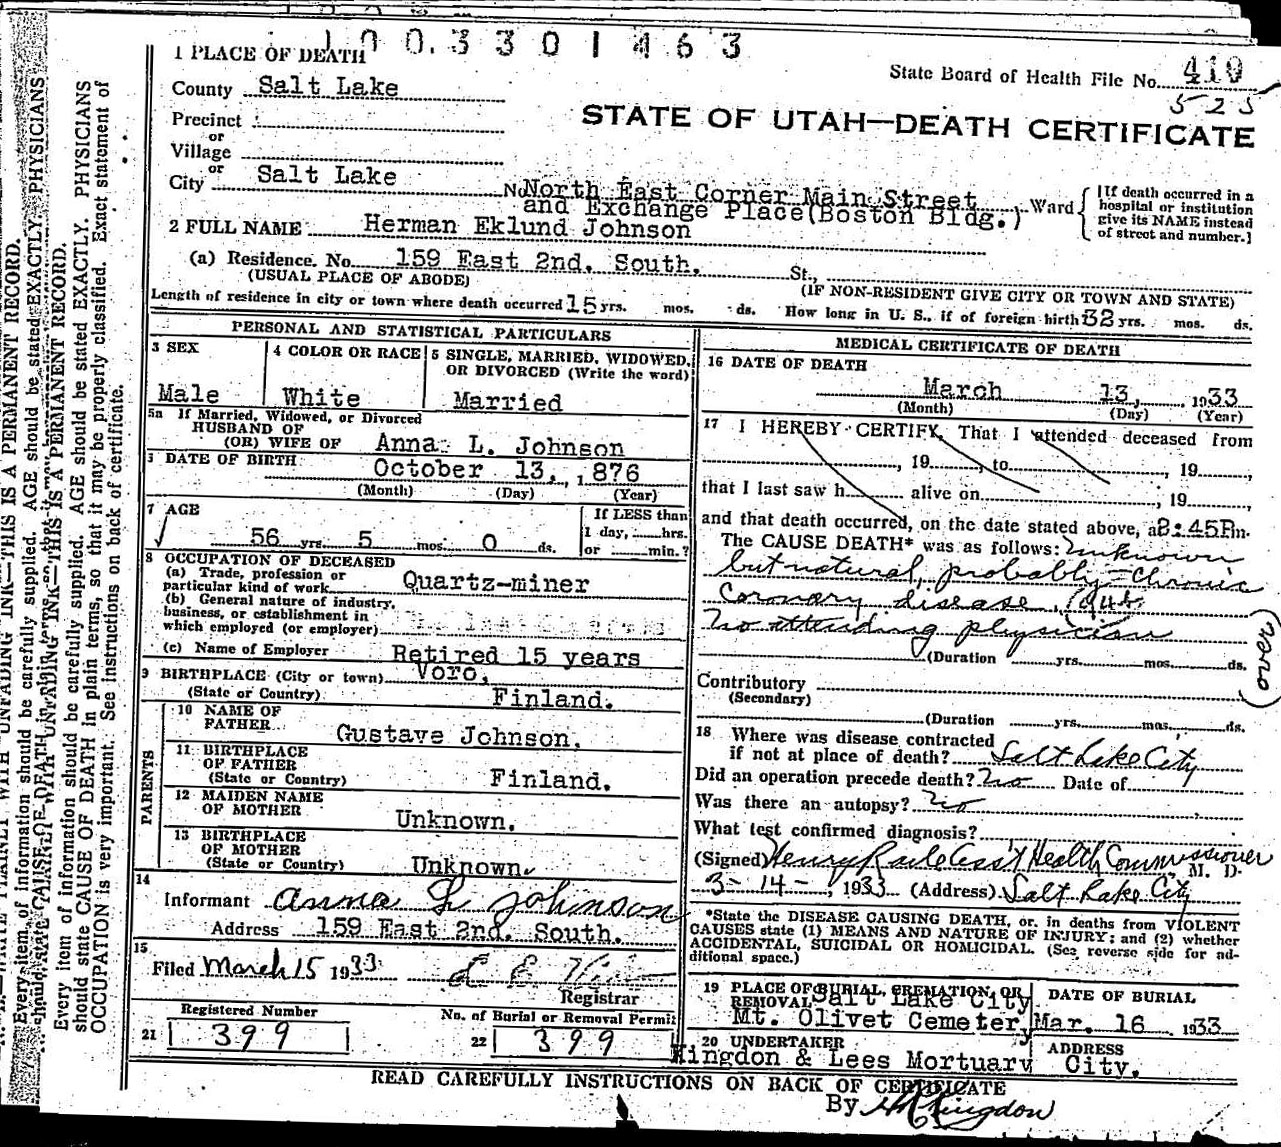 1003301463
1 PLACE OF DEATH
State Board of Health File No. 410
County Salt Lake
525
Precinct
STATE OF UTAH—DEATH CERTIFICATE
or
Village
or
City Salt Lake No. North East Corner Main Street Ward
and Exchange Place(Boston Bldg.)
[If death occurred in a
hospital or institution
give its NAME instead
of street and number.]
2 FULL NAME Herman Eklund Johnson
(a) Residence. No. 159 East 2nd. South. St.,
(USUAL PLACE OF ABODE) (IF NON-RESIDENT GIVE CITY OR TOWN AND STATE)
Length of residence in city or town where death occurred 15 yrs. mos. ds. How long in U. S., if of foreign birth 32 yrs. mos. ds.
PERSONAL AND STATISTICAL PARTICULARS
3 SEX 4 COLOR OR RACE 5 SINGLE, MARRIED, WIDOWED,
OR DIVORCED (Write the word)
Male White Married
5a If Married, Widowed, or Divorced
HUSBAND OF
(OR) WIFE OF Anna L. Johnson
DATE OF BIRTH
October 13, 1876
(Month) (Day) (Year)
7 AGE If LESS than
56 yrs. 5 mos. 0 ds. 1 day, hrs.
or min.?
8 OCCUPATION OF DECEASED
(a) Trade, profession or
particular kind of work Quartz-miner
(b) General nature of industry,
business, or establishment in
which employed (or employer)
(c) Name of Employer Retired 15 years
9 BIRTHPLACE (City or town) Voro,
(State or Country) Finland.
PARENTS
10 NAME OF
FATHER Gustave Johnson.
11 BIRTHPLACE
OF FATHER
(State or Country) Finland.
12 MAIDEN NAME
OF MOTHER Unknown.
13 BIRTHPLACE
OF MOTHER
(State or Country) Unknown.
14
Informant Anna L Johnson
Address 159 East 2nd. South.
15
Filed March 15 1933
Registrar
Registered Number No. of Burial or Removal Permit
21 399 22 399
MEDICAL CERTIFICATE OF DEATH
16 DATE OF DEATH
March 13, 1933
(Month) (Day) (Year)
17 I HEREBY CERTIFY, That I attended deceased from
, 19 , to , 19
that I last saw h alive on , 19
and that death occurred, on the date stated above, at 8:45P m.
The CAUSE DEATH* was as follows: Unknown
but natural, probably chronic
Coronary disease, 94b
No attending physician
(Duration yrs. mos. ds.
Contributory
(Secondary)
(Duration yrs. mos. ds.
18 Where was disease contracted
if not at place of death? Salt Lake City
Did an operation precede death? No Date of
Was there an autopsy? No
What test confirmed diagnosis?
(Signed) Henry Raile Ass't Health Commissioner
M. D.
3-14-, 1933 (Address) Salt Lake City
*State the DISEASE CAUSING DEATH, or, in deaths from VIOLENT
CAUSES state (1) MEANS AND NATURE OF INJURY; and (2) whether
ACCIDENTAL, SUICIDAL OR HOMICIDAL. (See reverse side for ad-
ditional space.)
19 PLACE OF BURIAL, CREMATION, OR
REMOVAL Salt Lake City
Mt. Olivet Cemetery
DATE OF BURIAL
Mar. 16 1933
20 UNDERTAKER ADDRESS
Kingdon & Lees Mortuary City.
READ CAREFULLY INSTRUCTIONS ON BACK OF CERTIFICATE
By Kingdon
Every item of information should be carefully supplied. AGE should be stated EXACTLY. PHYSICIANS
should state CAUSE OF DEATH in plain terms, so that it may be properly classified. Exact statement of
OCCUPATION is very important. See instructions on back of certificate.